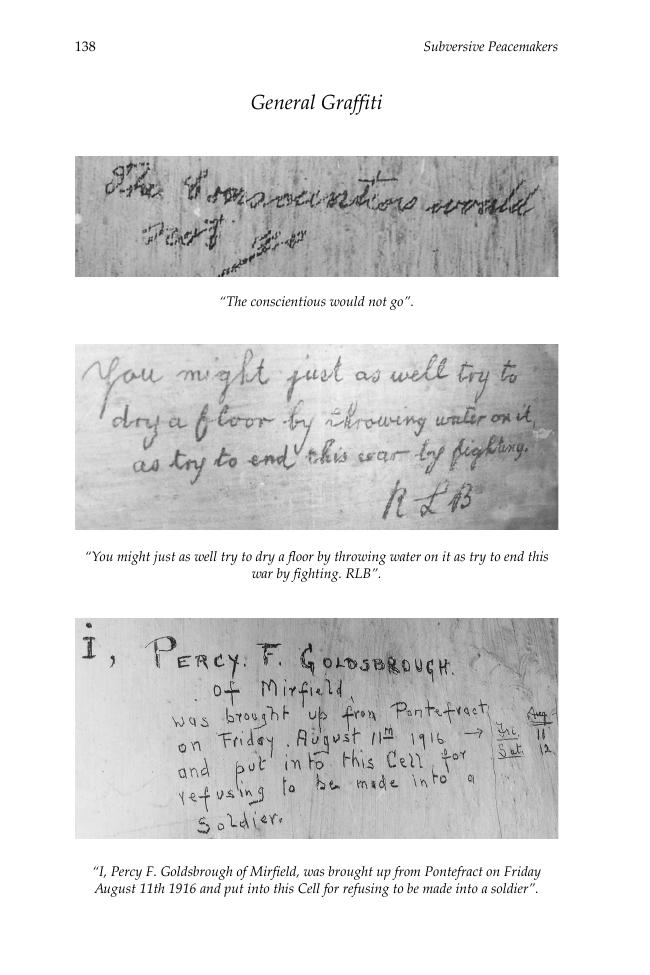 138 Subversive Peacemakers
General Graffiti
The Consciention would
not go
“The conscientious would not go”.
You might just as well try to
dry a floor by throwing water on it,
as try to end this war by fighting.
R L B
“You might just as well try to dry a floor by throwing water on it as try to end this
war by fighting. RLB”.
i, PERCY. F. GOLDSBROUGH.
of Mirfield,
was brought up from Pontefract
on Friday. August 11th 1916 → Fri. Aug 11
Sat. 12
and put into this Cell for
refusing to be made into a
Soldier.
“I, Percy F. Goldsbrough of Mirfield, was brought up from Pontefract on Friday
August 11th 1916 and put into this Cell for refusing to be made into a soldier”.